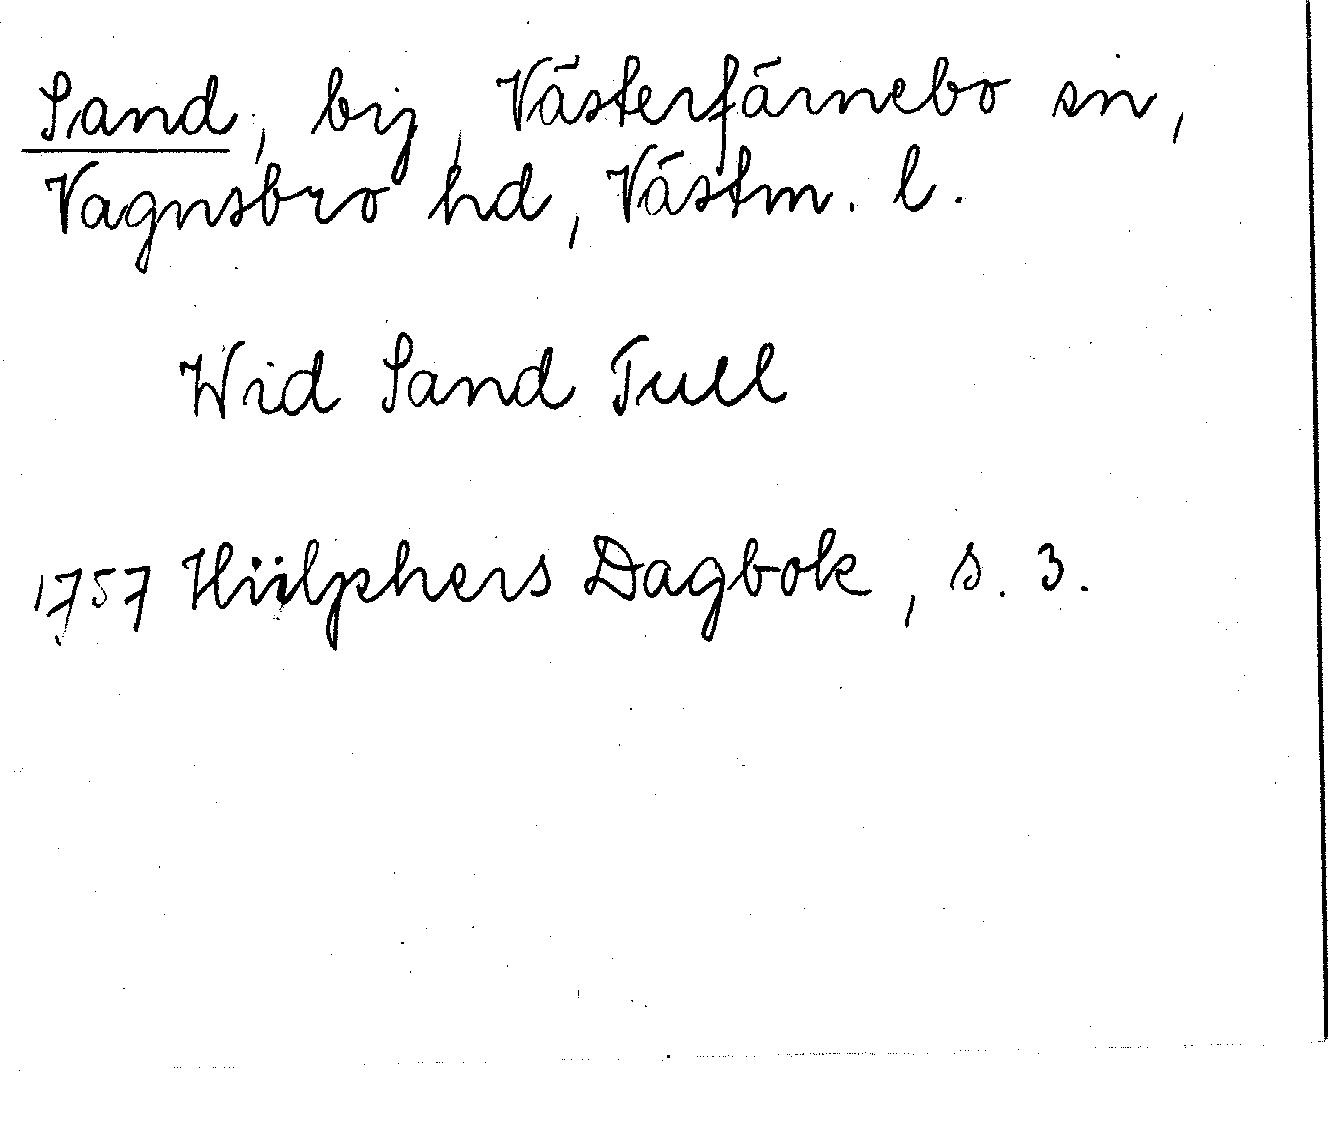 Sand, by, Västerfärnebo sn,
Vagnsbro hd, Västm. l.
Wid Sand Tull
1757 Hülphers Dagbok, s. 3.